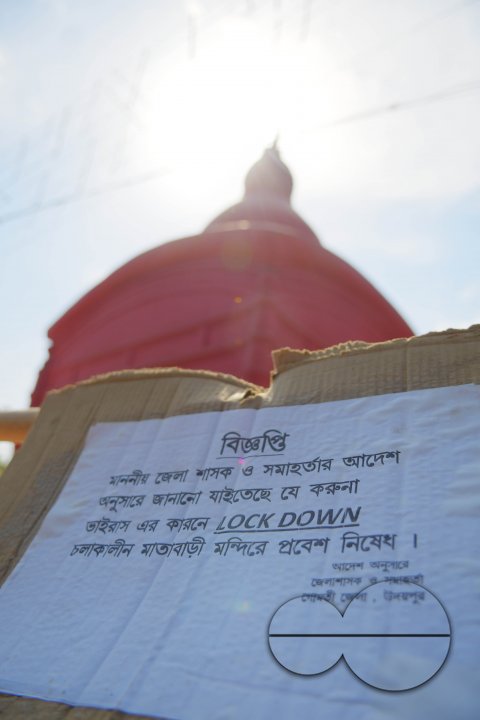 বিজ্ঞপ্তি
মাননীয় জেলা শাসক ও সমাহর্তার আদেশ
অনুসারে জানানো যাইতেছে যে করুনা
ভাইরাস এর কারনে LOCK DOWN
চলাকালীন মাতাবাড়ী মন্দিরে প্রবেশ নিষেধ ।
আদেশ অনুসারে
জেলাশাসক ও সমাহর্তা
গোমতী জেলা , উদয়পুর